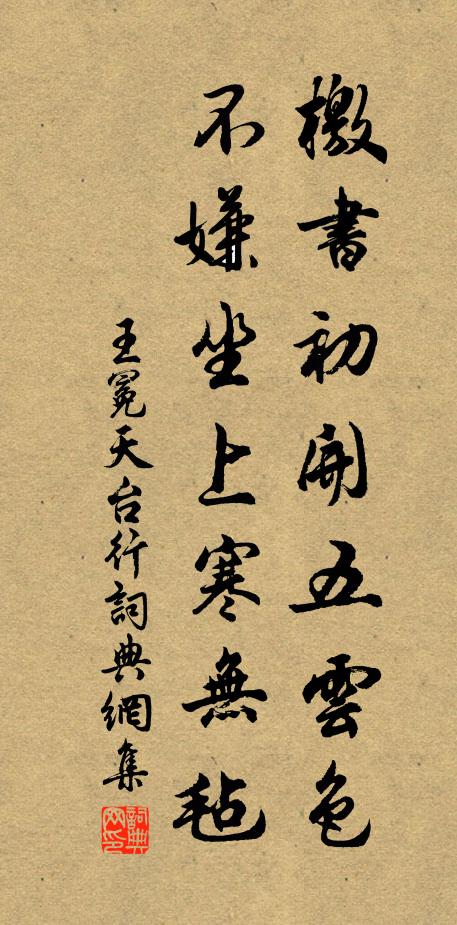 檄書初開五雲色
不嫌坐上寒無毡
王冕天台行詞典網集
詞典網印